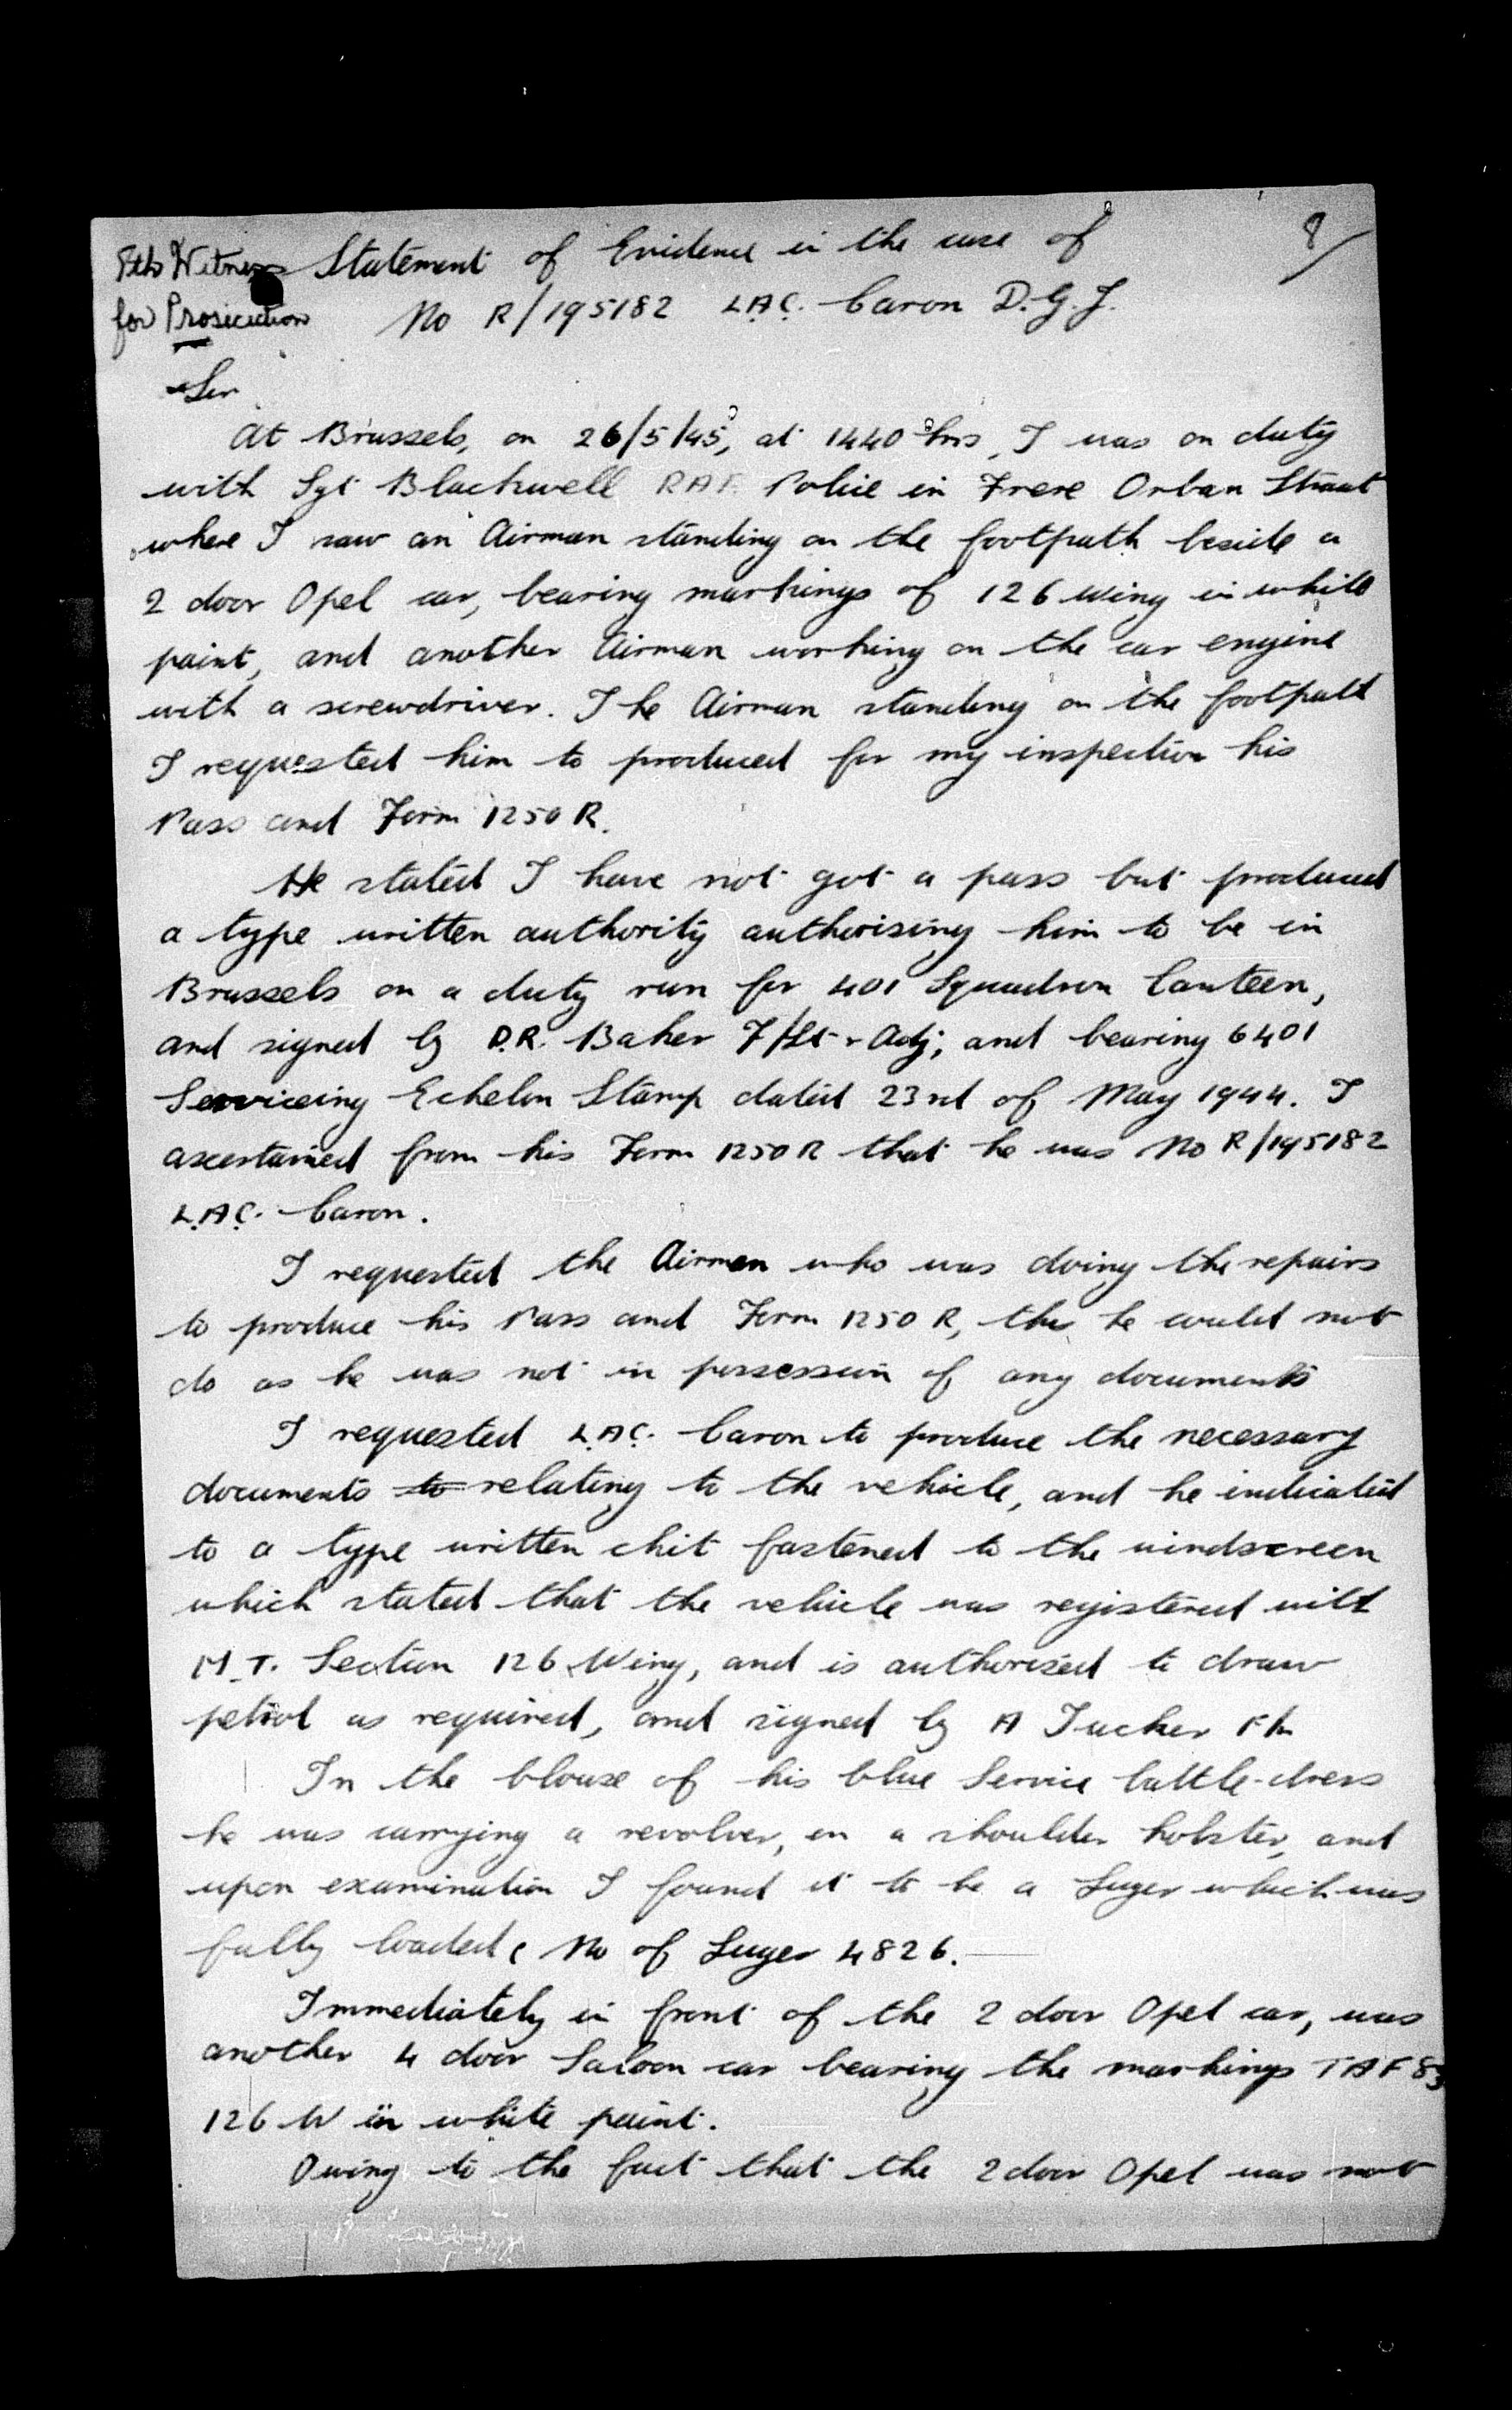 8th Witness
for Prosecution
8/
Statement of Evidence in the case of
No R/195182 L.A.C. Caron D.G.J.
Sir
At Brussels, on 26/5/45, at 1440 hrs, I was on duty
with Sgt Blackwell RAF. Police in Frere Orban Straat
where I saw an Airman standing on the footpath beside a
2 door Opel car, bearing markings of 126 Wing in white
paint, and another Airman working on the car engine
with a screwdriver. The Airman standing on the footpath
I requested him to produced for my inspection his
Pass and Form 1250 R.
He stated I have not got a pass but produced
a type written authority authorising him to be in
Brussels on a duty run for 401 Squadron Canteen,
and signed by D.R. Baker F/Lt - Adj; and bearing 6401
Serviceing Echelon Stamp dated 23rd of May 1944. I
ascertained from his Form 1250R that he was No R/195182
L.A.C. Caron.
I requested the Airmen who was doing the repairs
to produce his Pass and Form 1250 R, this he could not
do as he was not in possession of any documents
I requested L.A.C. Caron to produce the necessary
documents to relating to the vehicle, and he indicated
to a type written chit fastened to the windscreen
which stated that the vehicle was registered with
M.T. Section 126 Wing, and is authorised to draw
petrol as required, and signed by A Tucker
In the blouse of his blue Service battle-dress
he was carrying a revolver, in a shoulder holster, and
upon examination I found it to be a Luger which was
fully loaded, No of Luger 4826.
Immediately in front of the 2 door Opel car, was
another 4 door Saloon car bearing the markings TAF 83
126 W in white paint.
Owing to the fact that the 2 door Opel was not